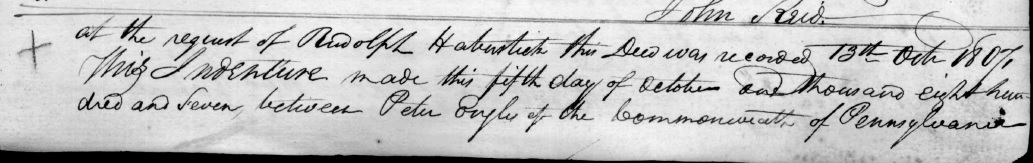 John Reid.
at the request of Rudolph Haberstick this Deed was recorded 13th Octr 1807.
This Indenture made this fifth day of October One thousand eight hun-
dred and seven, between Peter of the Commonwealth of Pennsylvania